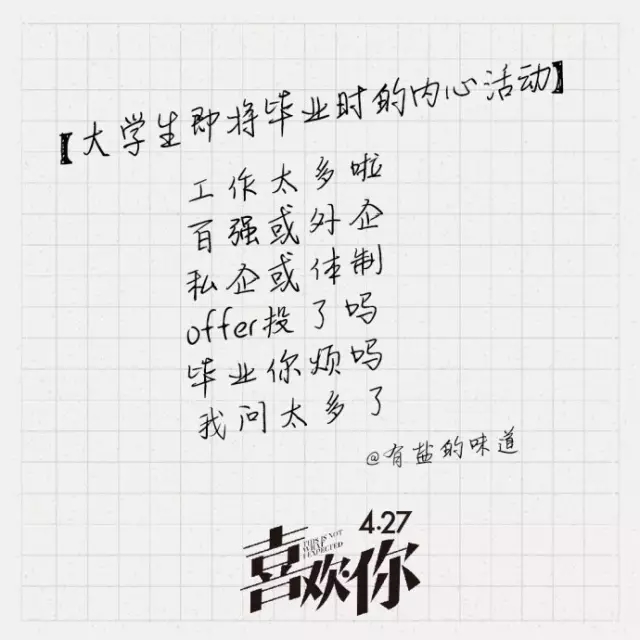 【大学生即将毕业时的内心活动】
工作太多啦
百强或外企
私企或体制
offer投了吗
毕业你烦吗
我问太多了
@有盐的味道
4.27
喜欢·你
THIS IS NOT
WHAT
I EXPECTED